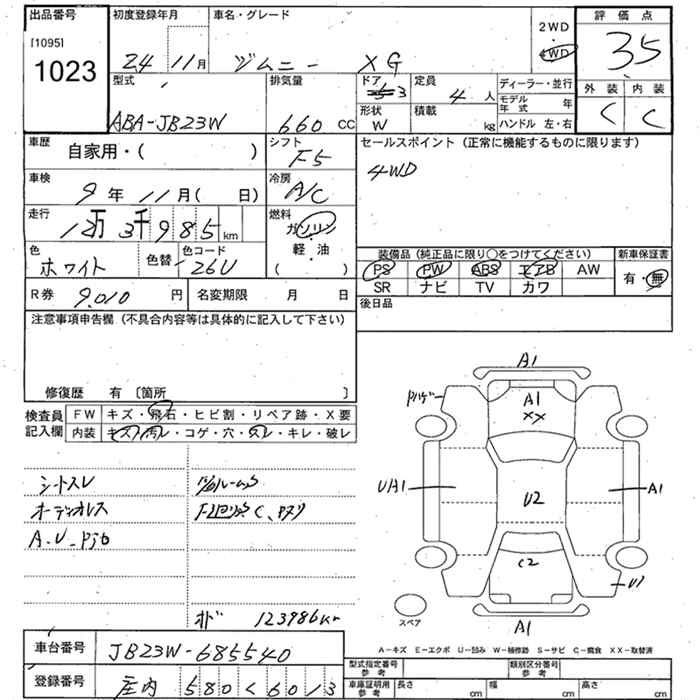 出品番号
[1095]
1023
初度登録年月
24 11月
車名・グレード
ジムニー XG
2WD
・
4WD
評価点
3.5
外装 内装
C C
型式
ABA-JB23W
排気量
660 CC
ドア
5 3
形状
W
定員
4 人
積載
kg
ディーラー・並行
モデル年式 年
ハンドル 左・右
車歴
自家用・( )
シフト
F5
セールスポイント (正常に機能するものに限ります)
4WD
車検
9年11月( 日)
冷房
A/C
走行
12万3千985km
燃料
ガソリン
・
軽油
( )
色
ホワイト
色替
色コード
26U
装備品 (純正品に限り○をつけてください)
PS PW ABS エアB AW
SR ナビ TV カワ
新車保証書
有・無
R券 9,010 円
名変期限 月 日
後日品
注意事項申告欄 (不具合内容等は具体的に記入して下さい)
修復歴 有 〔箇所 〕
検査員記入欄
FW キズ・飛石・ヒビ割・リペア跡・X要
内装 キズ・汚レ・コゲ・穴・スレ・キレ・破レ
シートスレ
オーディオレス
123986km
A1
A1
XX
UA1
U2
A1
C2
U1
A1
スペア
A-キズ E-エクボ U-凹み W-補修跡 S-サビ C-腐食 XX-取替済
車台番号 JB23W-685540
登録番号 庄内 580 く 6013
型式指定番号
参考
類別区分番号
参考
車庫証明用
参考
長さ cm 幅 cm 高さ cm